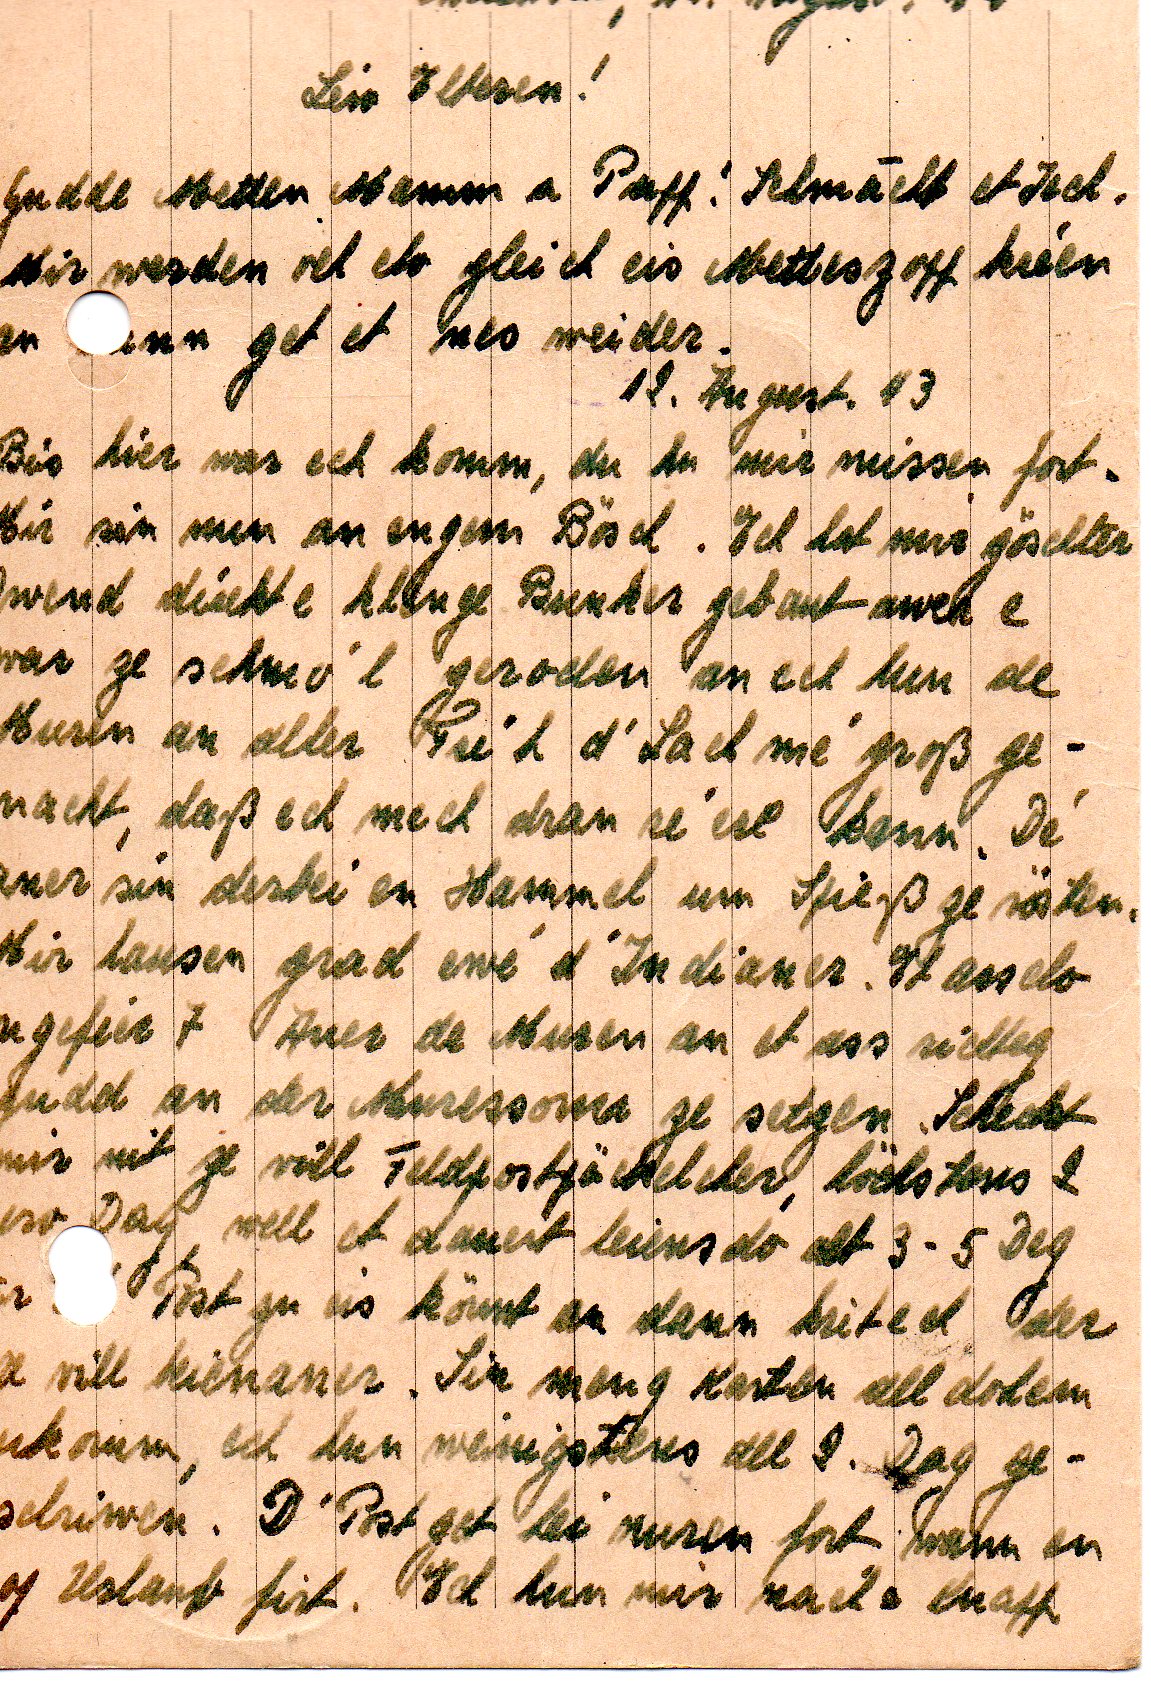 Leiw Elteren!
Gudde Metten Mamm a Papp! Schmācht et Iech.
Mir werden och elo gleich eis Metteszopp kréen
an dann get et nes weider.
12. August. 43
Bis hier war ech komm, du hu mir missen fort.
Mir sin nun an engem Bösch. Ech hat mir göschter
Owend direkt e klenge Bunker gebaut awer e
war ze schmó'l geroden an ech hun de
Muren an aller Fréi'h d'Lach mé groß ge-
macht, daß ech mech dran réiere kann. Dé
aner sin derbei en Hammel um Spieß ze rösten.
Mir hausen grad ewé d'Indianer. Et ass elo
ongeféier 7 Auer de Muren an et ass richteg
gudd an der Muressonn ze setzen. Schéckt
mir nit ze vill Feldpostpäckelcher, höchstens 2
pro Dag well et dauert heiansdo alt 3-5 Deg
Post zu eis könnt an dann krit ech der
ze vill hienaner. Sin meng Karten all dohem
ukomm, ech hun wéinigstens all 2. Dag ge-
schriwen. D'Post get hei nuren fort wann en
op Urlaub fiert. Ech hun mir nach e Knapp